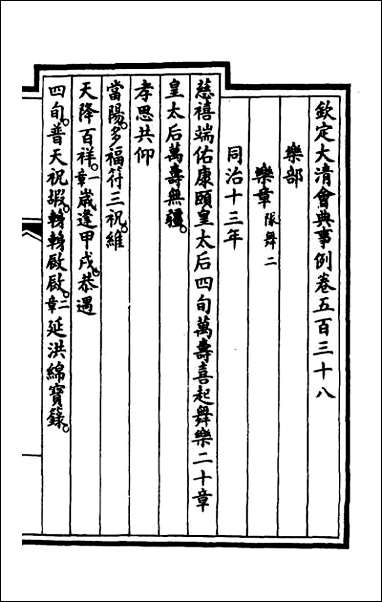 欽定大清會典事例卷五百三十八
樂部
樂章隊舞二
同治十三年
慈禧端佑康頤皇太后四旬萬壽喜起舞樂二十章
皇太后萬壽無疆。
孝思共仰
當陽。多福符三祝。維
天降百祥。一章歲逢甲戌。恭遇
四旬。普天祝嘏。轉轉啟啟。二章延洪綿寶籙。